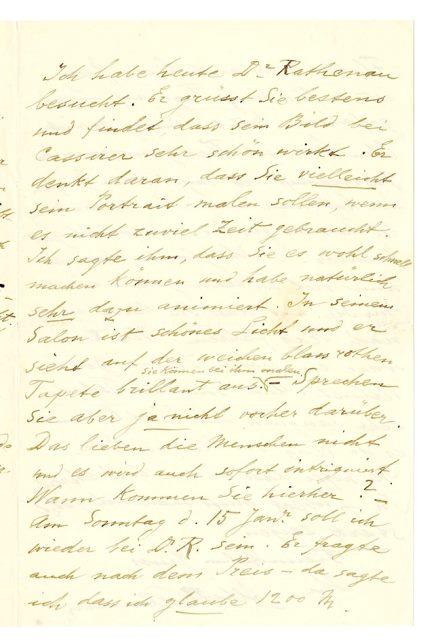 Ich habe heute Dr Rathenau
besucht. Er grüsst Sie bestens
und findet dass sein Bild bei
Cassirer sehr schön wirkt. Er
denkt daran, dass Sie vielleicht
sein Portrait malen sollen, wenn
es nicht zuviel Zeit gebraucht.
Ich sagte ihm, dass Sie es wohl schnell
machen können und habe natürlich
sehr dazu animiert. In seinem
Salon ist schönes Licht und er
sieht auf der weichen blass rothen
Sie können bei ihm malen.
Tapete brillant aus. – Sprechen
Sie aber ja nicht vorher darüber.
Das lieben die Menschen nicht
und es wird auch sofort intriguirt.
Wann kommen Sie hierher? –
Am Sonntag d. 15 Janr. soll ich
wieder bei Dr. R. sein. Er fragte
auch nach dem Preis – da sagte
ich dass ich glaube 1200 M.